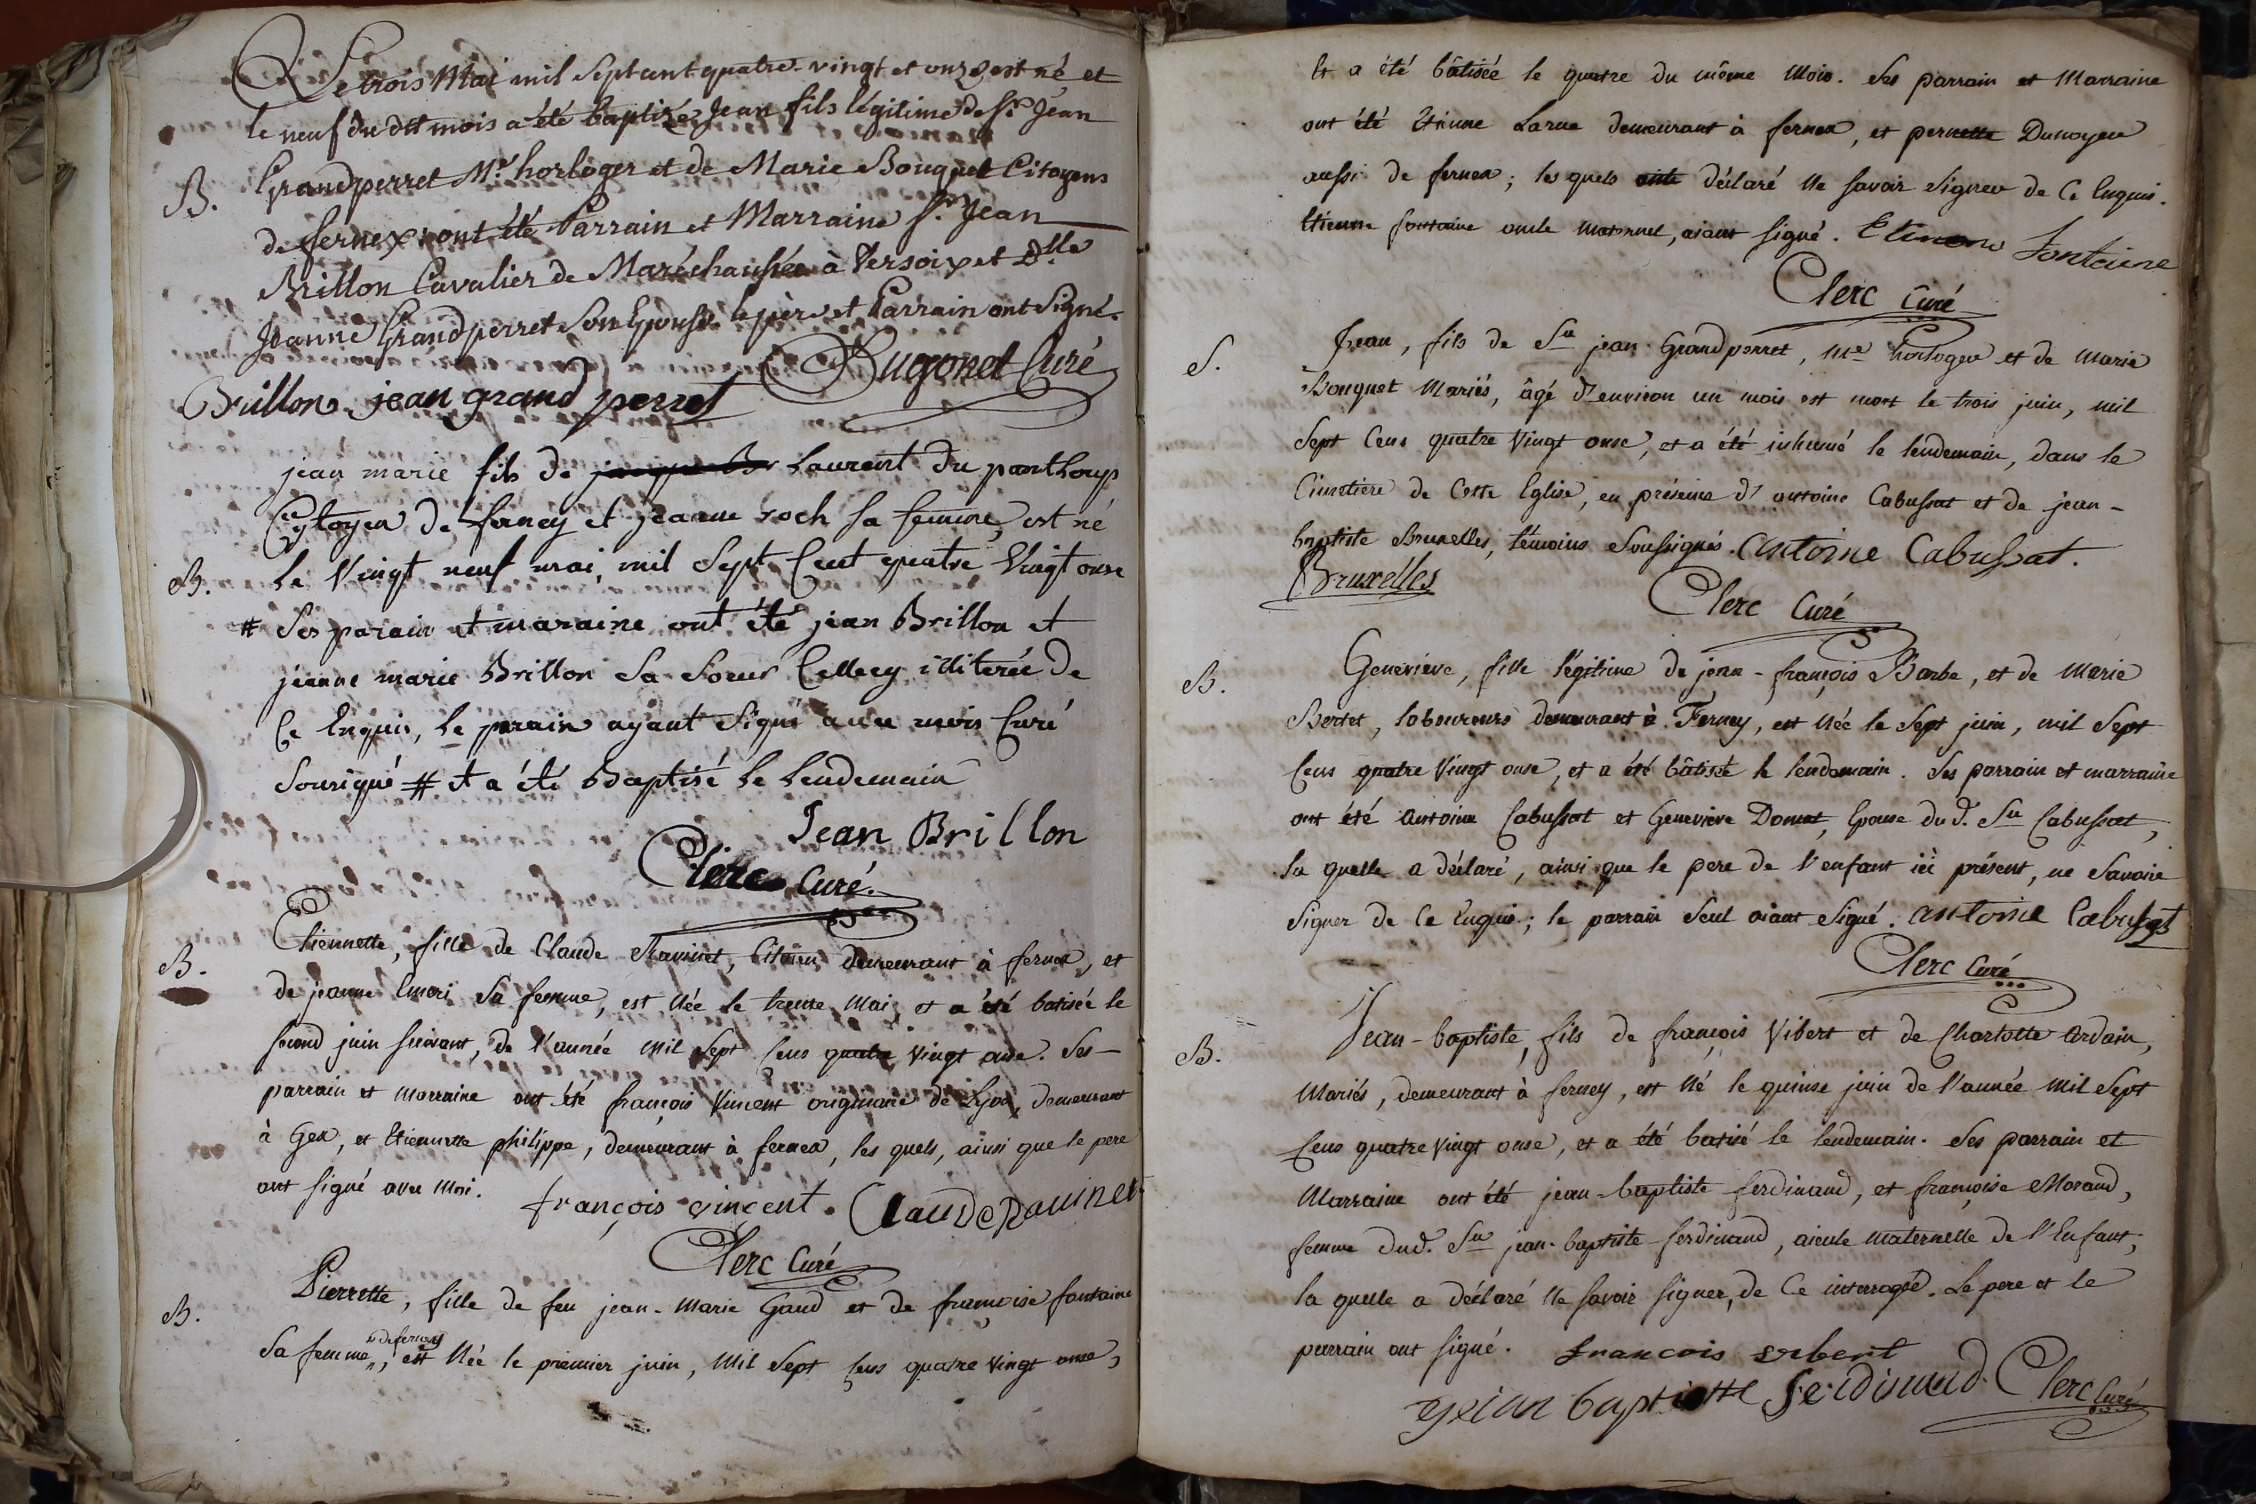 Le trois Mai mil Septant quatre-vingt et onze est né et
le neuf du dit mois a été baptizé Jean fils légitime de Sr. Jean
B. Grandperret Mr. horloger et de Marie Bouquet Citoyens
de fernex; ont été Parrain et Marraine Sr. Jean
Brillon Cavalier de Maréchaussée à Versoix et Dlle
Jeanne Grandperret Son Epouse. le père et Parrain ont Signé.
Dugonet Curé
Brillon jean grand perret
jean marie fils de Laurent du pantloup
Cytoyen de ferney et jeanne roch sa femme, est né
B. Le Vingt neuf mai, mil Sept Cent quatre Vingt onse
# Ses parain et maraine ont été jean Brillon et
jeanne marie Brillon Sa Soeur Cellecy illiterée de
Ce Enquis, le parain ayant Signé avec mois Curé
Sousigné # et a été Baptisé le lendemain
Jean Brillon
Clerc Curé.
Etiennette, fille de Claude Ravinet, Citoïen demeurant à fernex, et
B. de jeanne Emeri Sa femme, est née le trente Mai, et a été batisée le
second juin suivant, de l'année mil Sept Cens quatre vingt onse. Ses
parrain et marraine ont été françois Vincent originaire de Lyon, demeurant
à Gex, et Etiennette philippe, demeurant à fernex, les quels, ainsi que le pere
ont signé avec Moi. françois vincent. Claude Ravinet
Clerc Curé
Pierrette, fille de feu jean-Marie Gaud et de françoise fontaine
B. Sa femme, de ferney, est Née le premier juin, Mil Sept Cens quatre vingt onse,
Et a été bâtisée le quatre du même Mois. Ses parrain et Marraine
ont été Etienne Larue demeurant à fernex, et pernette Dunoyer
aussi de fernex; les quels ont déclaré Ne Savoir Signer de Ce Enquis.
Etienne fontaine oncle maternel, aiant signé. Etienne Fontaine
Clerc Curé
S. Jean, fils de Sr jean Grandperret, Me horloger et de Marie
Bouquet Mariés, âgé d'environ un mois est mort le trois juin, mil
Sept Cens quatre Vingt onse, et a été inhumé le lendemain, dans le
Cimetière de Cette Eglise, en présence d'antoine Cabussat et de jean-
baptiste Bruxelles, témoins Soussignés. Antoine Cabussat.
Bruxelles
Clerc Curé
Geneviève, fille légitime de jean-françois Barbe, et de Marie
B. Bertet, laboureurs demeurant à Ferney, est Née le Sept juin, mil Sept
Cens quatre Vingt onse, et a été bâtisée le lendemain. Ses parrain et marraine
ont été Antoine Cabussat et Geneviève Donnet, Epouse dud. Sr Cabussat,
la quelle a déclaré, ainsi que le pere de l'enfant ici présent, ne Savoir
Signer de Ce Enquis; le parrain Seul aiant Signé. antoine Cabussat
Clerc Curé
Jean-baptiste, fils de françois Vibert et de Charlotte Ardain,
B. Mariés, demeurant à ferney, est Né le quinse juin de l'année Mil Sept
Cens quatre Vingt onse, et a été batisé le lendemain. Ses parrain et
Marraine ont été jean-baptiste ferdinand, et françoise Morand,
femme dud. Sr jean-baptiste ferdinand, aieule maternelle de l'Enfant;
la quelle a déclaré Ne savoir signer, de Ce interrogée. Le pere et le
parrain ont signé. francois vibert
jean baptiste ferdinand. Clerc Curé